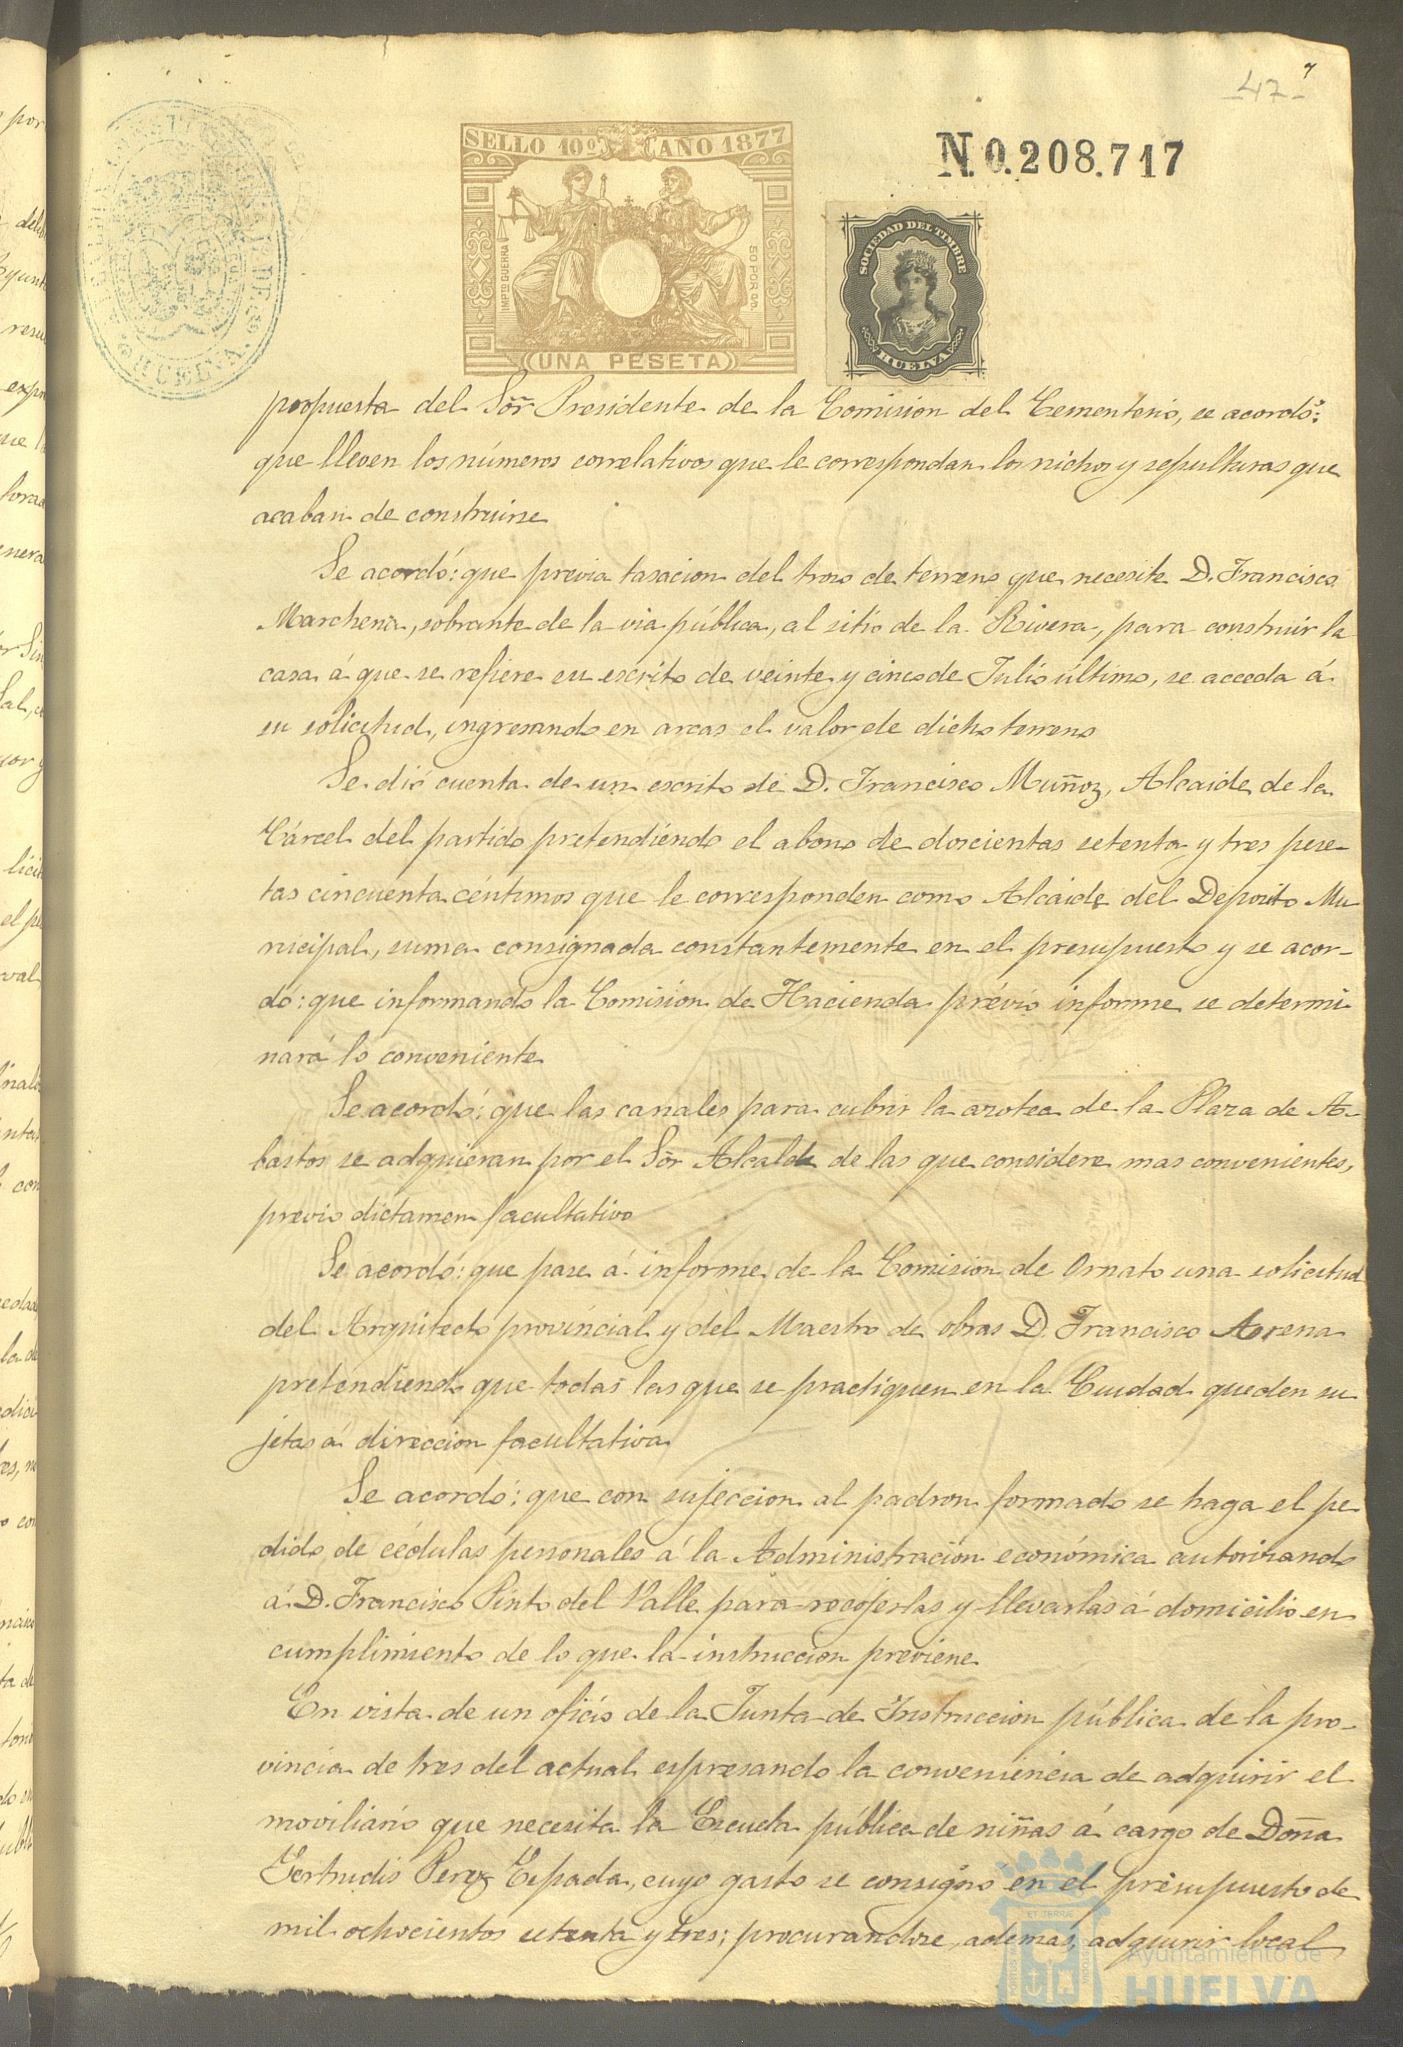 47
SELLO 10º AÑO 1877
N.0.208.717
IMPTO GUERRA
50 POR %
UNA PESETA
SOCIEDAD DEL TIMBRE
HUELVA
HUELVA
propuesta del Sõr Presidente de la Comision del Cementerio, se acordó:
que lleven los números correlativos que le correspondan los nichos y sepulturas que
acaban de construirse
Se acordó: que previa tasacion del trozo de terreno que necesite D. Francisco
Marchena, sobrante de la via pública, al sitio de la Rivera, para construir la
casa á que se refiere su escrito de veinte y cinco de Julio último, se acceda á
su solicitud, ingresando en arcas el valor de dicho terreno
Se dió cuenta de un escrito de D. Francisco Muñoz, Alcaide de la
Cárcel del partido pretendiendo el abono de doscientas setenta y tres pese-
tas cincuenta céntimos que le corresponden como Alcaide del Deposito Mu
nicipal, suma consignada constantemente en el presupuesto y se acor-
dó: que informando la Comision de Hacienda prévio informe se determi
nará lo conveniente
Se acordó: que las canales para cubrir la azotea de la Plaza de A-
bastos se adquieran por el Sõr Alcalde de las que considere mas convenientes,
previo dictamen facultativo
Se acordó: que pase á informe de la Comision de Ornato una solicitud
del Arquitecto provincial y del Maestro de obras D. Francisco Arena
pretendiendo que todas las que se practiquen en la Ciudad queden su
jetas á direccion facultativa
Se acordó: que con sujeccion al padron formado se haga el pe-
dido de cédulas personales á la Administracion económica autorizando
á D. Francisco Pinto del Valle para recojerlas y llevarlas á domicilio en
cumplimiento de lo que la instruccion previene
En vista de un oficio de la Junta de Instruccion pública de la pro-
vincia de tres del actual espresando la conveniencia de adquirir el
moviliario que necesita la Escuela pública de niñas á cargo de Doña
Gertrudis Perez Espada, cuyo gasto se consignó en el presupuesto de
mil ochocientos setenta y tres; procurandose, además, adquirir local
Ayuntamiento de
HUELVA